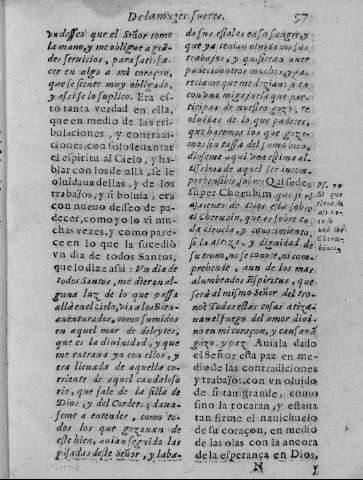 De la muger fuerte. 97
vn desseo que el Señor tome
la mano, y me obligue a grã-
des seruicios, para satisfa-
cer en algo a mi coraçon,
que se siente muy obligado,
y assi se lo suplico. Era es-
to tanta verdad en ella,
que en medio de las tri-
bulaciones, y contradi-
ciones, con solo leuantar
el espiritu al Cielo, y ha-
blar con los de allà, se le
oluidaua dellas, y de los
trabajos, y si boluia, era
con nueuo desseo de pa-
decer, como yo lo vi mu-
chas vezes, y como pare-
ce en lo que la sucediò
vn dia de todos Santos,
que lo dize assi: Vn dia de
todos Santos, me dieran al-
guna luz de lo que passa
allà en el Cielo, vi a los Bien-
auenturados, como sumidos
en aquel mar de deleytes,
que es la diuinidad, y que
me entraua yo con ellos, y
era llenada de aquella co-
rriente de aquel caudaloso
rio, que sale de la silla de
Dios, y del Cordero, y daua-
seme a entender, como to-
dos los que gozauan de
este bien, auian seguido las
pisadas deste Señor, y laba-
do sus estolas en su sangre, y
que ya tenian oluidados sus
trabajos, y quisieran auer
padecido muchos mas, y
pareceme que me dezian: si tu
con una migajuela que par-
ticipas de nuestro gozo, te
oluidas de lo que padeces,
que haremos los que goza-
mos la cassa del sumo bien,
dioseme aqui vna estima al-
tissima de aquel ser incom-
prehensible sobre: Qui sedes
super Cherubim, que si el
assiento de Dios està sobre
el Cherubin, que es sobre to-
da ciencia, y conocimiento,
si la alteza, y dignidad de
su trono, no se conoce, ni com-
prehende, aun de los mas
alumbrados Espiritus, que
serà al mismo Señor del tro-
no? Todas estas cosas atiza-
uan el fuego del amor diui-
no en mi coraçon, y causauã
gozo, y paz. Auiala dado
el Señor esta paz en me-
dio de las contradiciones
y trabajos, con vn oluido
de si tan grande, como
sino la tocaran, y estaua
tan firme el nauichuelo
de su coraçon, en medio
de las olas con la ancora
de la esperança en Dios,
N y